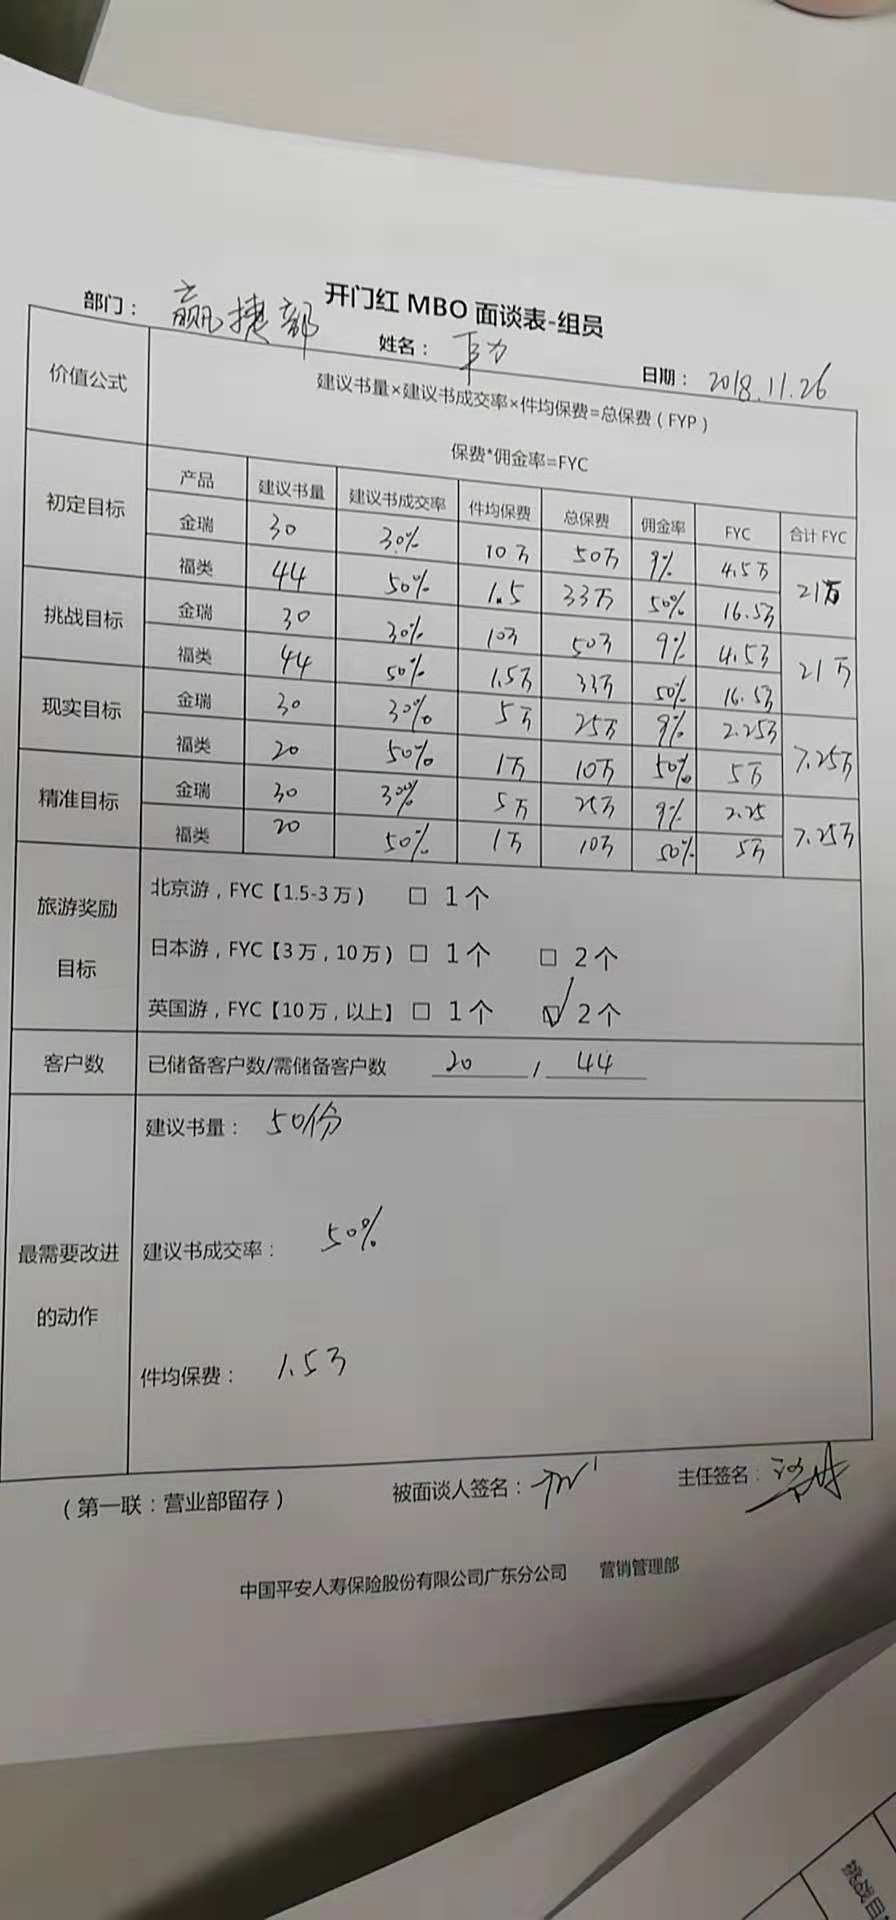 开门红 MBO 面谈表-组员
部门： 赢捷部 姓名： 日期： 2018.11.26
价值公式 建议书量×建议书成交率×件均保费=总保费（FYP）
保费*佣金率=FYC
产品 建议书量 建议书成交率 件均保费 总保费 佣金率 FYC 合计 FYC
初定目标 金瑞 30 30% 10万 50万 9% 4.5万 21万
福类 44 50% 1.5 33万 50% 16.5万
挑战目标 金瑞 30 30% 10万 50万 9% 4.5万 21万
福类 44 50% 1.5万 33万 50% 16.5万
现实目标 金瑞 30 30% 5万 25万 9% 2.25万 7.25万
福类 20 50% 1万 10万 50% 5万
精准目标 金瑞 30 30% 5万 25万 9% 2.25 7.25万
福类 20 50% 1万 10万 50% 5万
旅游奖励
目标
北京游，FYC【1.5-3 万） □ 1个
日本游，FYC【3 万，10 万） □ 1个 □ 2个
英国游，FYC【10 万，以上】 □ 1个 ☑ 2个
客户数 已储备客户数/需储备客户数 20 / 44
最需要改进
的动作
建议书量： 50份
建议书成交率： 50%
件均保费： 1.5万
（第一联：营业部留存） 被面谈人签名： 主任签名：
中国平安人寿保险股份有限公司广东分公司 营销管理部
挑战目